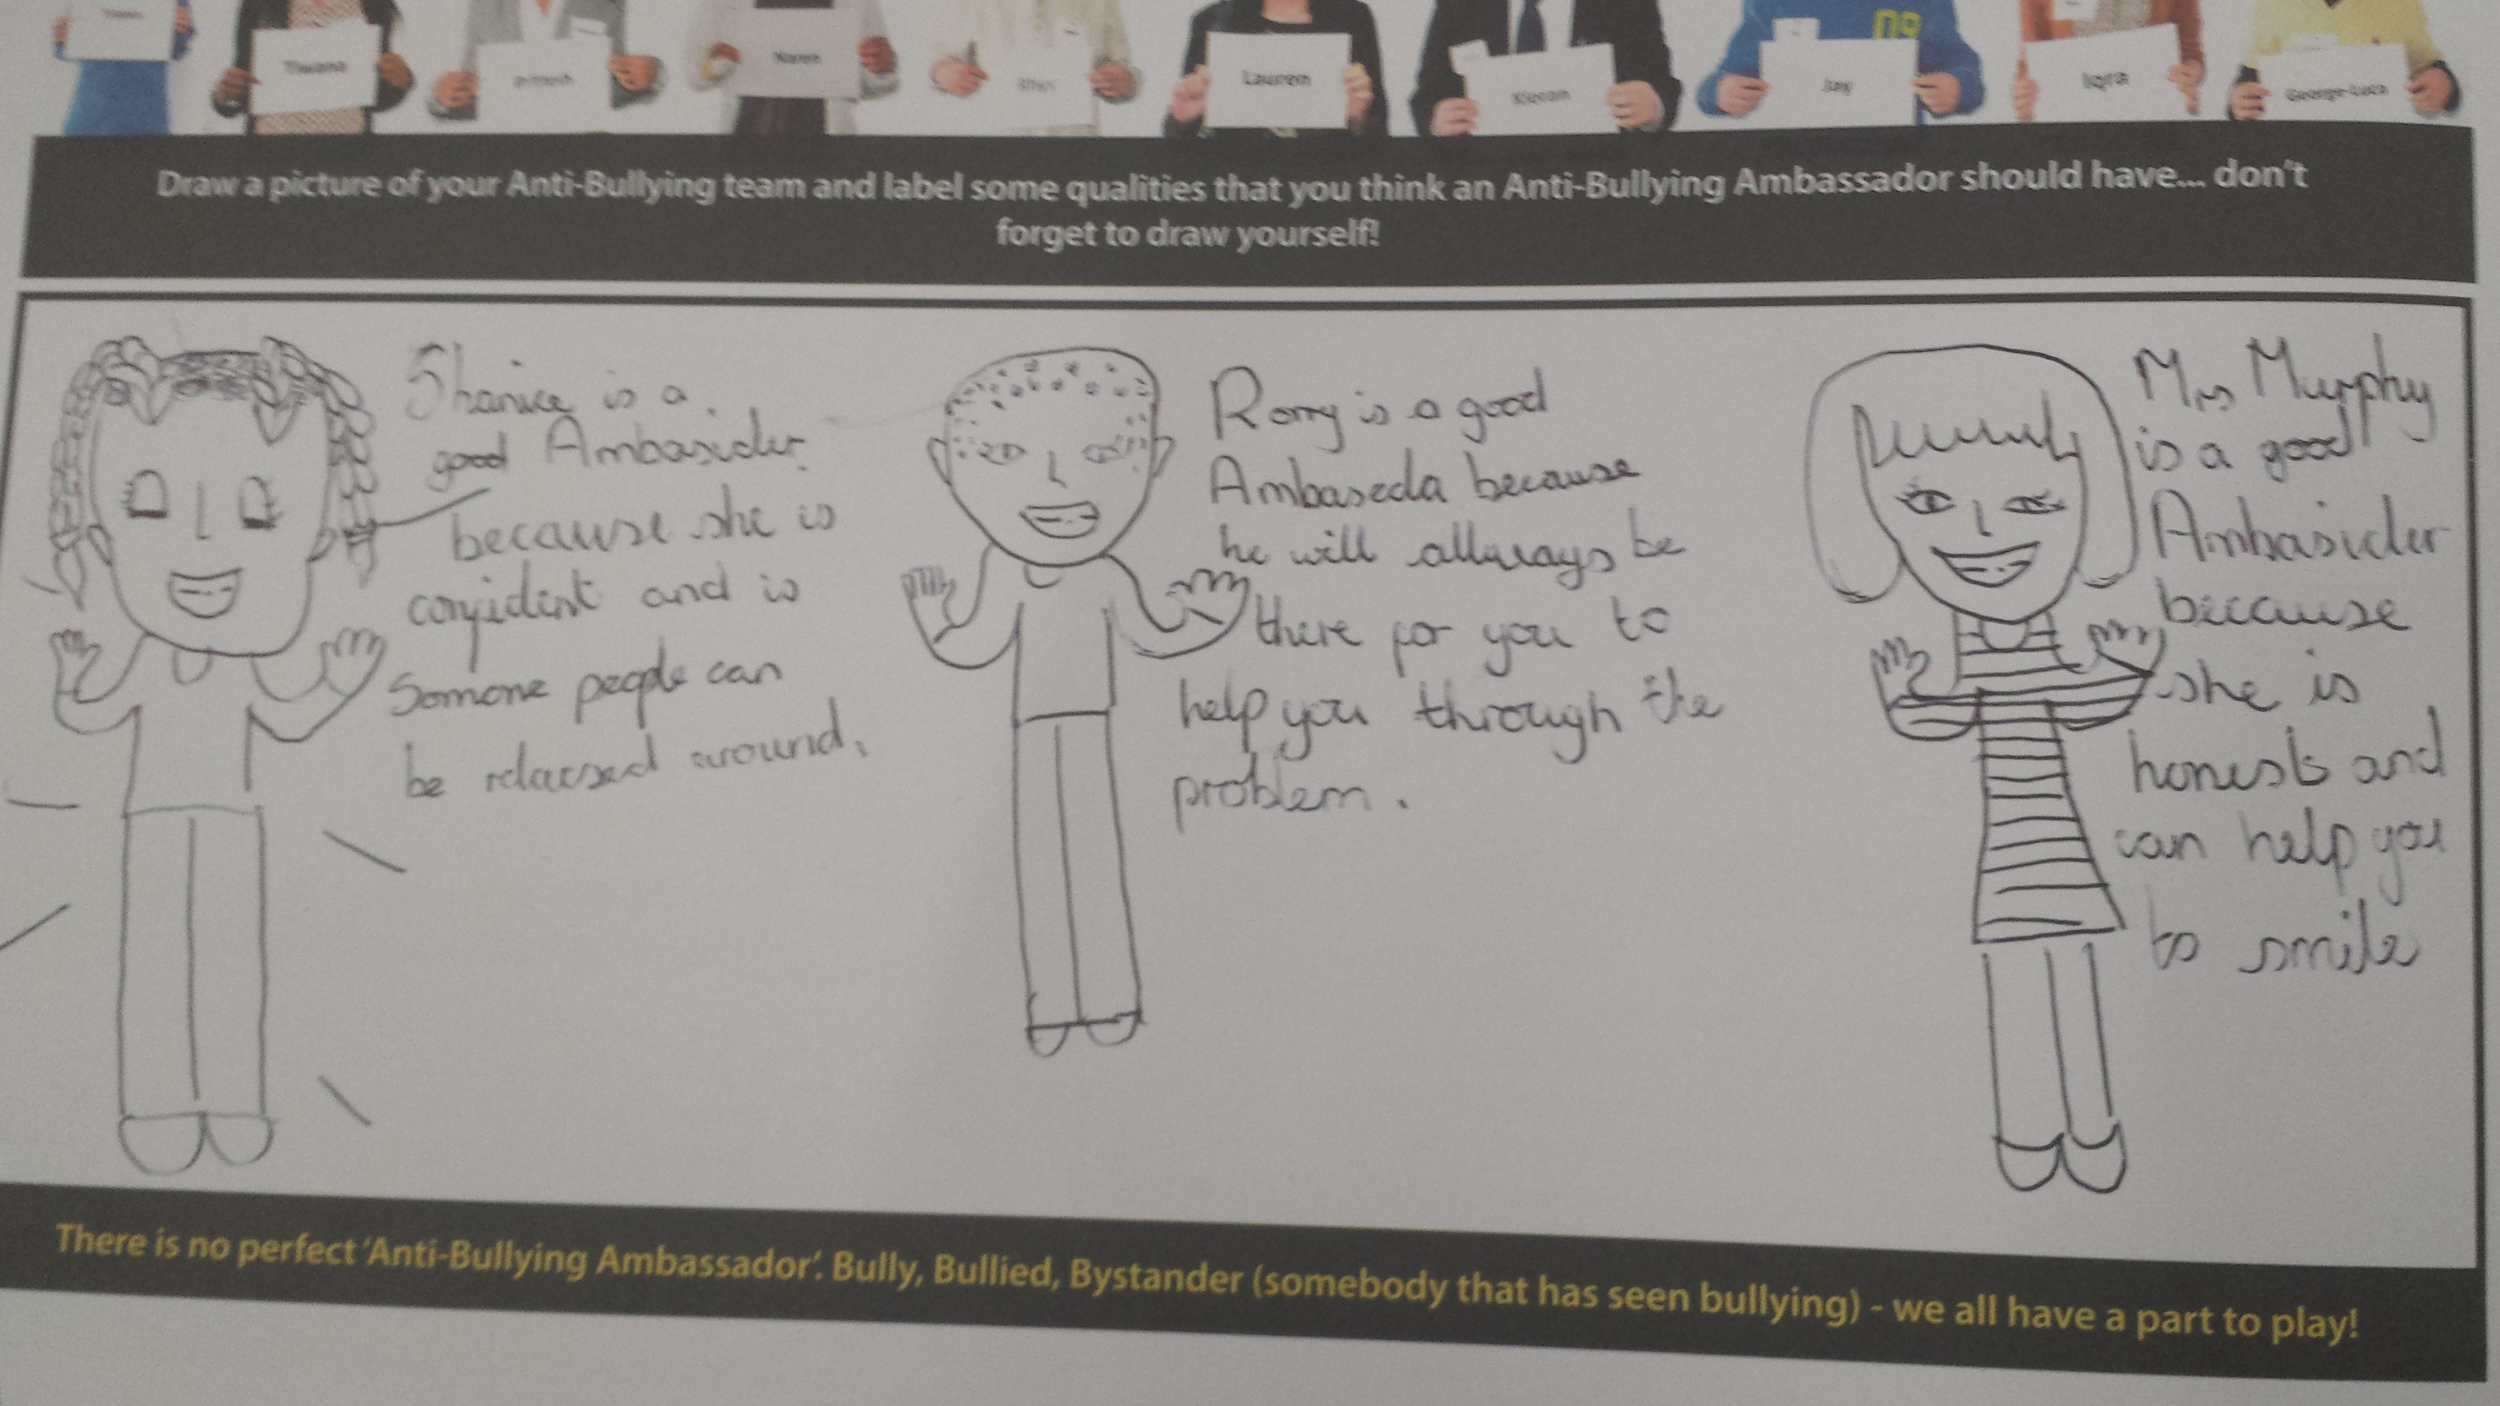 Tiwana
Karen
Rhys
Lauren
Kieran
Jay
09
Iqra
George-Luca
Draw a picture of your Anti-Bullying team and label some qualities that you think an Anti-Bullying Ambassador should have... don't
forget to draw yourself!
Shanice is a
good Ambasider
because she is
confident and is
Somone people can
be relacsed around.
Rorry is a good
Ambaseda because
he will allways be
there for you to
help you through the
problem.
Mrs Murphy
is a good
Ambasider
because
she is
honest and
can help you
to smile
There is no perfect 'Anti-Bullying Ambassador'. Bully, Bullied, Bystander (somebody that has seen bullying) - we all have a part to play!